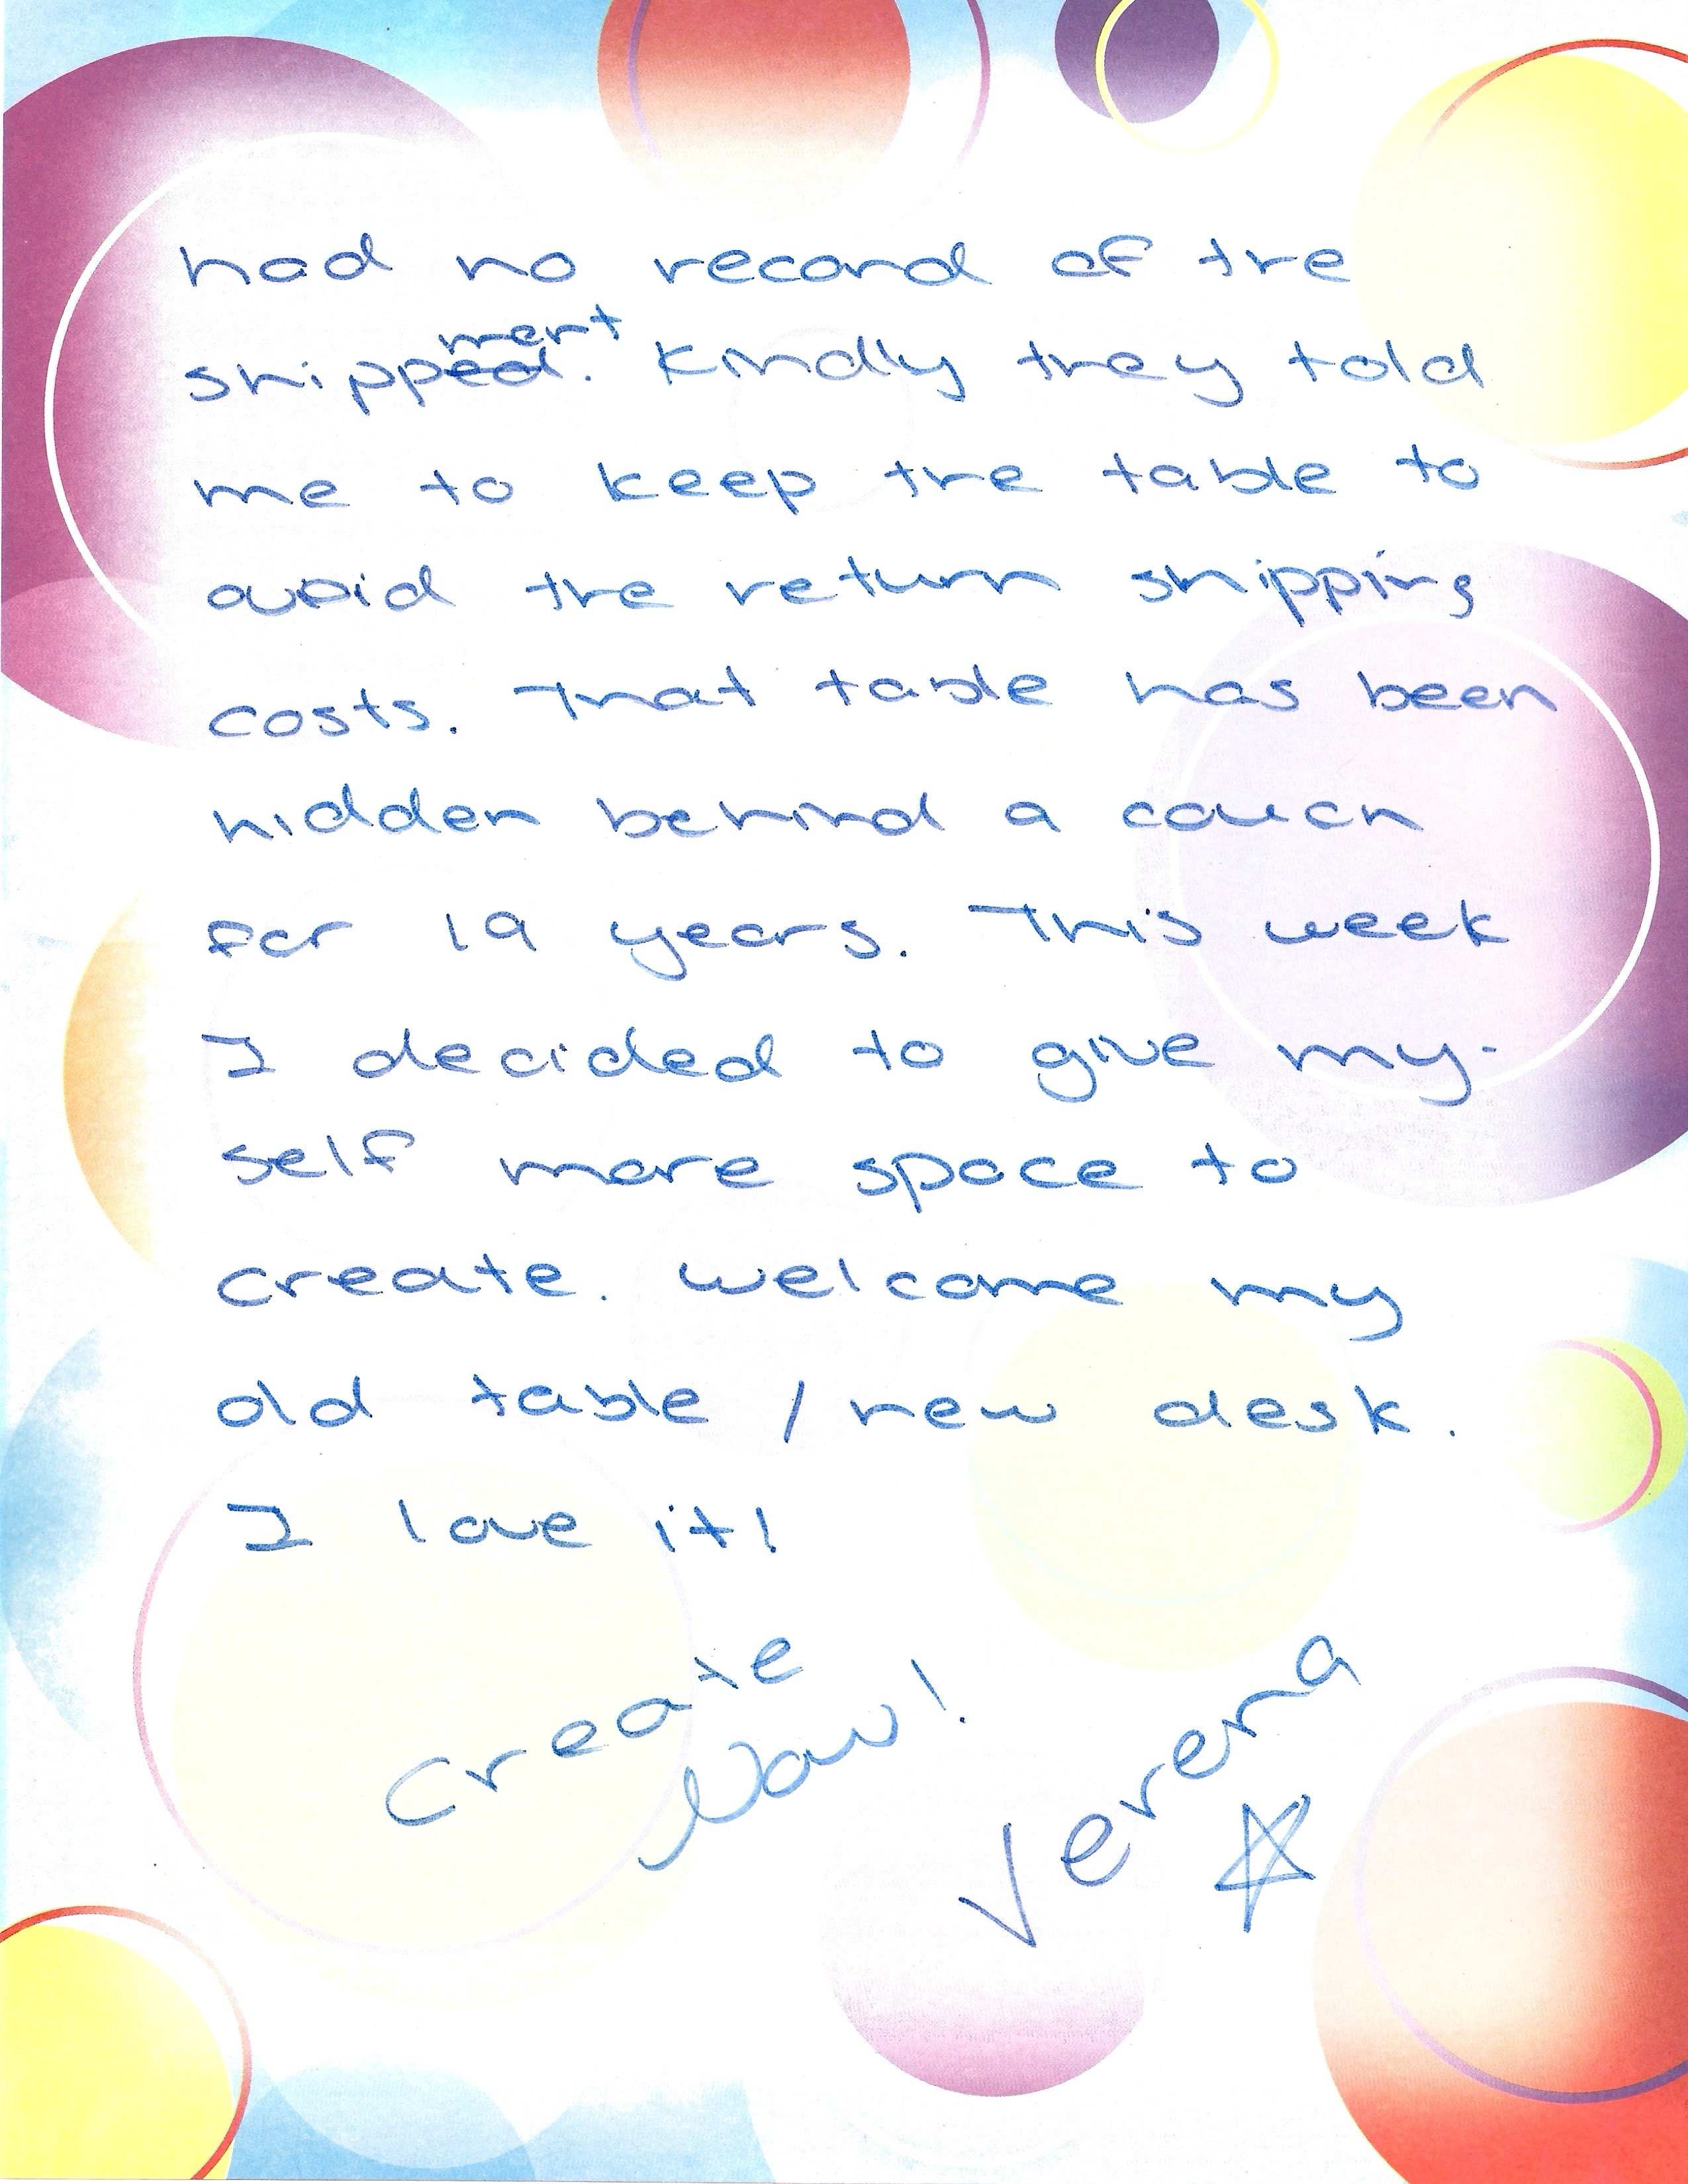 had no record of the
shipped. ment Kindly they told
me to keep the table to
avoid the return shipping
costs. That table has been
hidden behind a couch
for 19 years. This week
I decided to give my-
self more space to
create. Welcome my
old table / new desk.
I love it!
Create
Now!
Verena